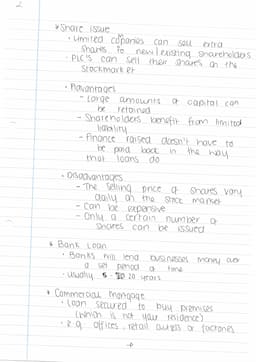 2
* Share issue
· Limited companies can sell extra
shares to new/existing shareholders
· PLC's can sell their shares on the
stockmarket
· Advantages
- Large amounts of capital can
be retained
- Shareholders benefit from limited
liability
- Finance raised doesn't have to
be paid back in the way
that loans do
· Disadvantages
- The selling price of shares vary
daily on the stock market
- Can be expensive
- Only a certain number of
shares can be issued
* Bank Loan
· Banks will lend businesses money over
a set period of time
· Usually 5 - 20 years
* Commercial Mortgage
· Loan secured to buy premises
(which is not your residence)
· e.g. offices, retail outlets or factories